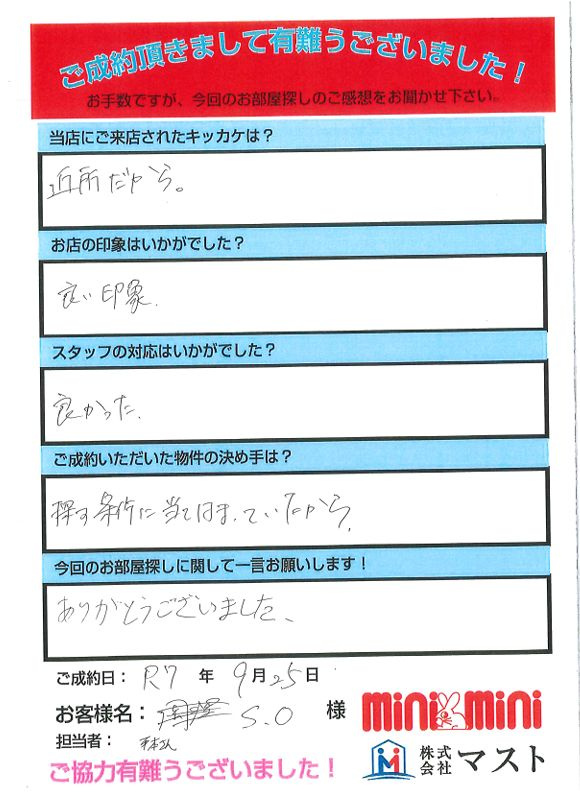 ご成約頂きまして有難うございました！
お手数ですが、今回のお部屋探しのご感想をお聞かせ下さい。
当店にご来店されたキッカケは？
近所だから。
お店の印象はいかがでした？
良い印象.
スタッフの対応はいかがでした？
良かった.
ご成約いただいた物件の決め手は？
探す条件に当てはまっていたから.
今回のお部屋探しに関して一言お願いします！
ありがとうございました、
ご成約日： R7 年 9月25日
お客様名： S.O 様
mini mini
担当者： さん
株式会社 マスト
ご協力有難うございました！